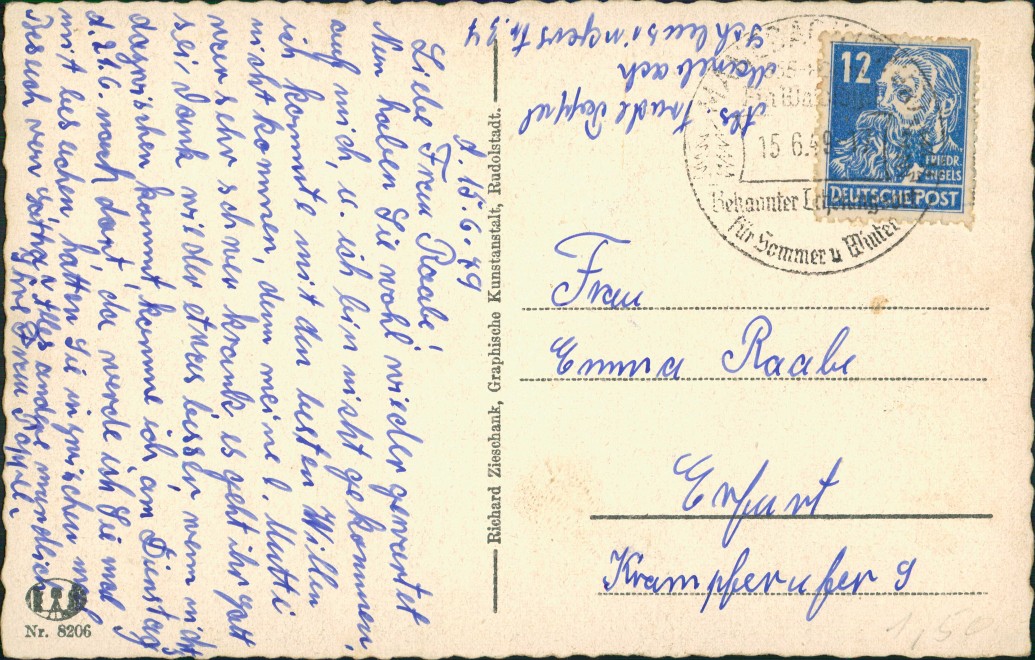 d. 15.6.49
Liebe Frau Raabe!
Nun haben Sie wohl wieder gewartet
auf mich, u. ich bin nicht gekommen,
ich konnte mit den besten Willen
nicht kommen, denn meine l. Mutti
war sehr schwer krank es geht ihr gott
sei dank wieder etwas besser, wenn nichts
dazwischen kommt komme ich am Dienstag
d. 21.6. nach dort, da werde ich Sie mal
mit besuchen, hätten Sie inzwischen mal
Besuch von Alles andre mündlich
Ihre Frau Poppel.
Abs. Trude Poppel
Manebach
Schleusingerstr. 34
Richard Zieschank, Graphische Kunstanstalt, Rudolstadt.
Nr. 8206
12
FRIEDR. ENGELS
DEUTSCHE POST
15.6.49
Bekannter
für Sommer u Winter
Frau
Emma Raabe
Erfurt
Krämpferufer 9
1,50